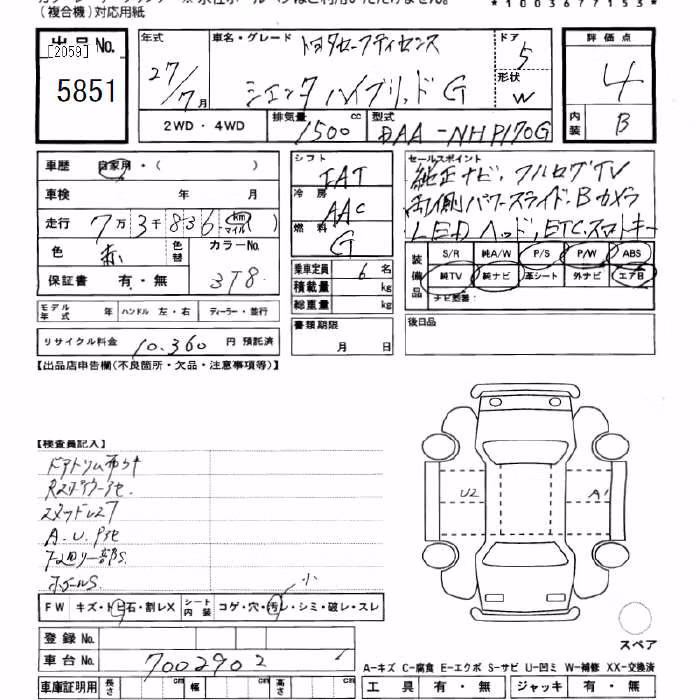 (複合機)対応用紙
*1003677153*
出品No.
[2059]
5851
年式
27/7月
車名・グレード
トヨタセーフティセンス
シエンタ ハイブリッド G
ドア
5
形状
W
評価点
4
内装
B
2WD・4WD
排気量
1500 cc
型式
DAA-NHP170G
車歴 自家用・( )
車検 年 月
走行 7万3千836 km マイル
色 赤
色替
カラーNo.
3T8
保証書 有・無
モデル年式 年 ハンドル 左・右 ディーラー・並行
リサイクル料金 10,360 円 預託済
シフト
IAT
冷房
AAC
燃料
G
乗車定員 6 名
積載量 kg
総重量 kg
書類期限
月 日
セールスポイント
純正ナビ、フルセグTV
両側パワースライド、Bカメラ
LEDヘッド、ETC、スマートキー
装備品
S/R 純A/W P/S P/W ABS
純TV 純ナビ 革シート 外ナビ エアB
ナビ型番:
後日品
【出品店申告欄(不良箇所・欠品・注意事項等)】
【検査員記入】
A.U.
U2
A1
小
FW キズ・トビ石・割レX
シート内装 コゲ・穴・汚レ・シミ・破レ・スレ
登録No.
車台No. 7002902
車庫証明用 長さ cm 幅 cm 高さ cm
スペア
A-キズ C-腐食 E-エクボ S-サビ U-凹ミ W-補修 XX-交換済
工具 有・無 ジャッキ 有・無